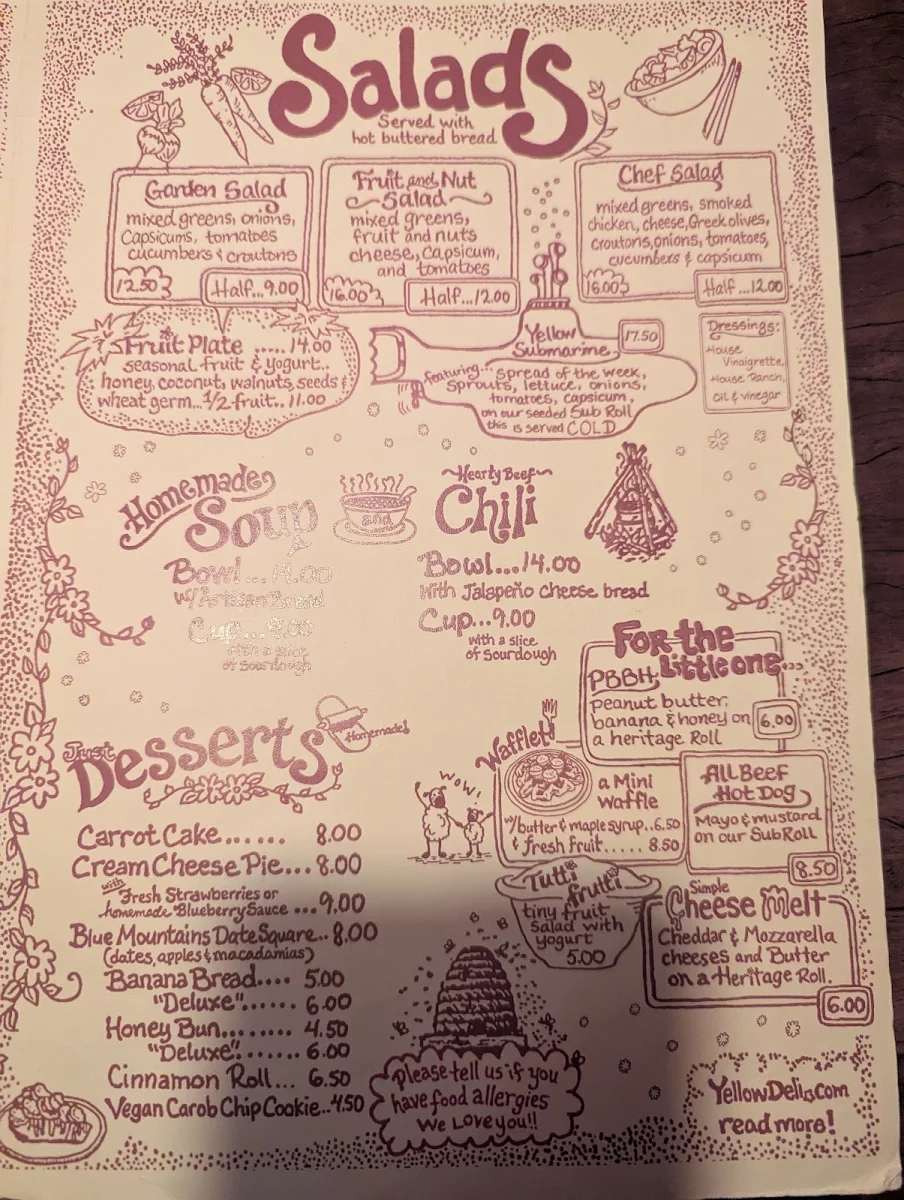 Salads
Served with
hot buttered bread
Garden Salad
mixed greens, onions,
Capsicums, tomatoes
cucumbers & croutons
12.50
Half...9.00
Fruit and Nut
Salad
mixed greens,
fruit and nuts
cheese, capsicum,
and tomatoes
16.00
Half...12.00
Chef Salad
mixed greens, smoked
chicken, cheese, Greek olives,
croutons, onions, tomatoes,
cucumbers & capsicum
16.00
Half...12.00
Fruit Plate .....14.00
seasonal fruit & yogurt..
honey, coconut, walnuts, seeds &
wheat germ...1/2 fruit..11.00
Yellow
Submarine
17.50
featuring... Spread of the week,
sprouts, lettuce, onions,
tomatoes, capsicum,
on our seeded Sub Roll
this is served COLD
Dressings:
House
Vinaigrette,
House Ranch,
Oil & Vinegar
Homemade
Soup
and
Bowl...14.00
w/Artisan Bread
Cup...9.00
with a slice
of sourdough
Hearty Beef
Chili
Bowl...14.00
with Jalapeño cheese bread
Cup...9.00
with a slice
of Sourdough
For the
Little one...
PBBH
peanut butter,
banana & honey on
a heritage Roll
6.00
Waffle!
a Mini
waffle
w/butter & maple syrup..6.50
& fresh fruit..... 8.50
WOW!
All Beef
Hot Dog
Mayo & mustard
on our Sub Roll
8.50
Tutti
frutti
tiny fruit
Salad with
yogurt
5.00
Simple
Cheese Melt
Cheddar & Mozzarella
cheeses and Butter
on a Heritage Roll.
6.00
Just
Desserts
Homemade!
Carrot Cake...... 8.00
Cream Cheese Pie... 8.00
with
Fresh Strawberries or
homemade Blueberry Sauce ...9.00
Blue Mountains Date Square.. 8.00
(dates, apples & macadamias)
Banana Bread.... 5.00
"Deluxe"...... 6.00
Honey Bun........ 4.50
"Deluxe"...... 6.00
Cinnamon Roll... 6.50
Vegan Carob Chip Cookie..4.50
Please tell us if you
have food allergies
We Love you!!
YellowDeli.com
read more!